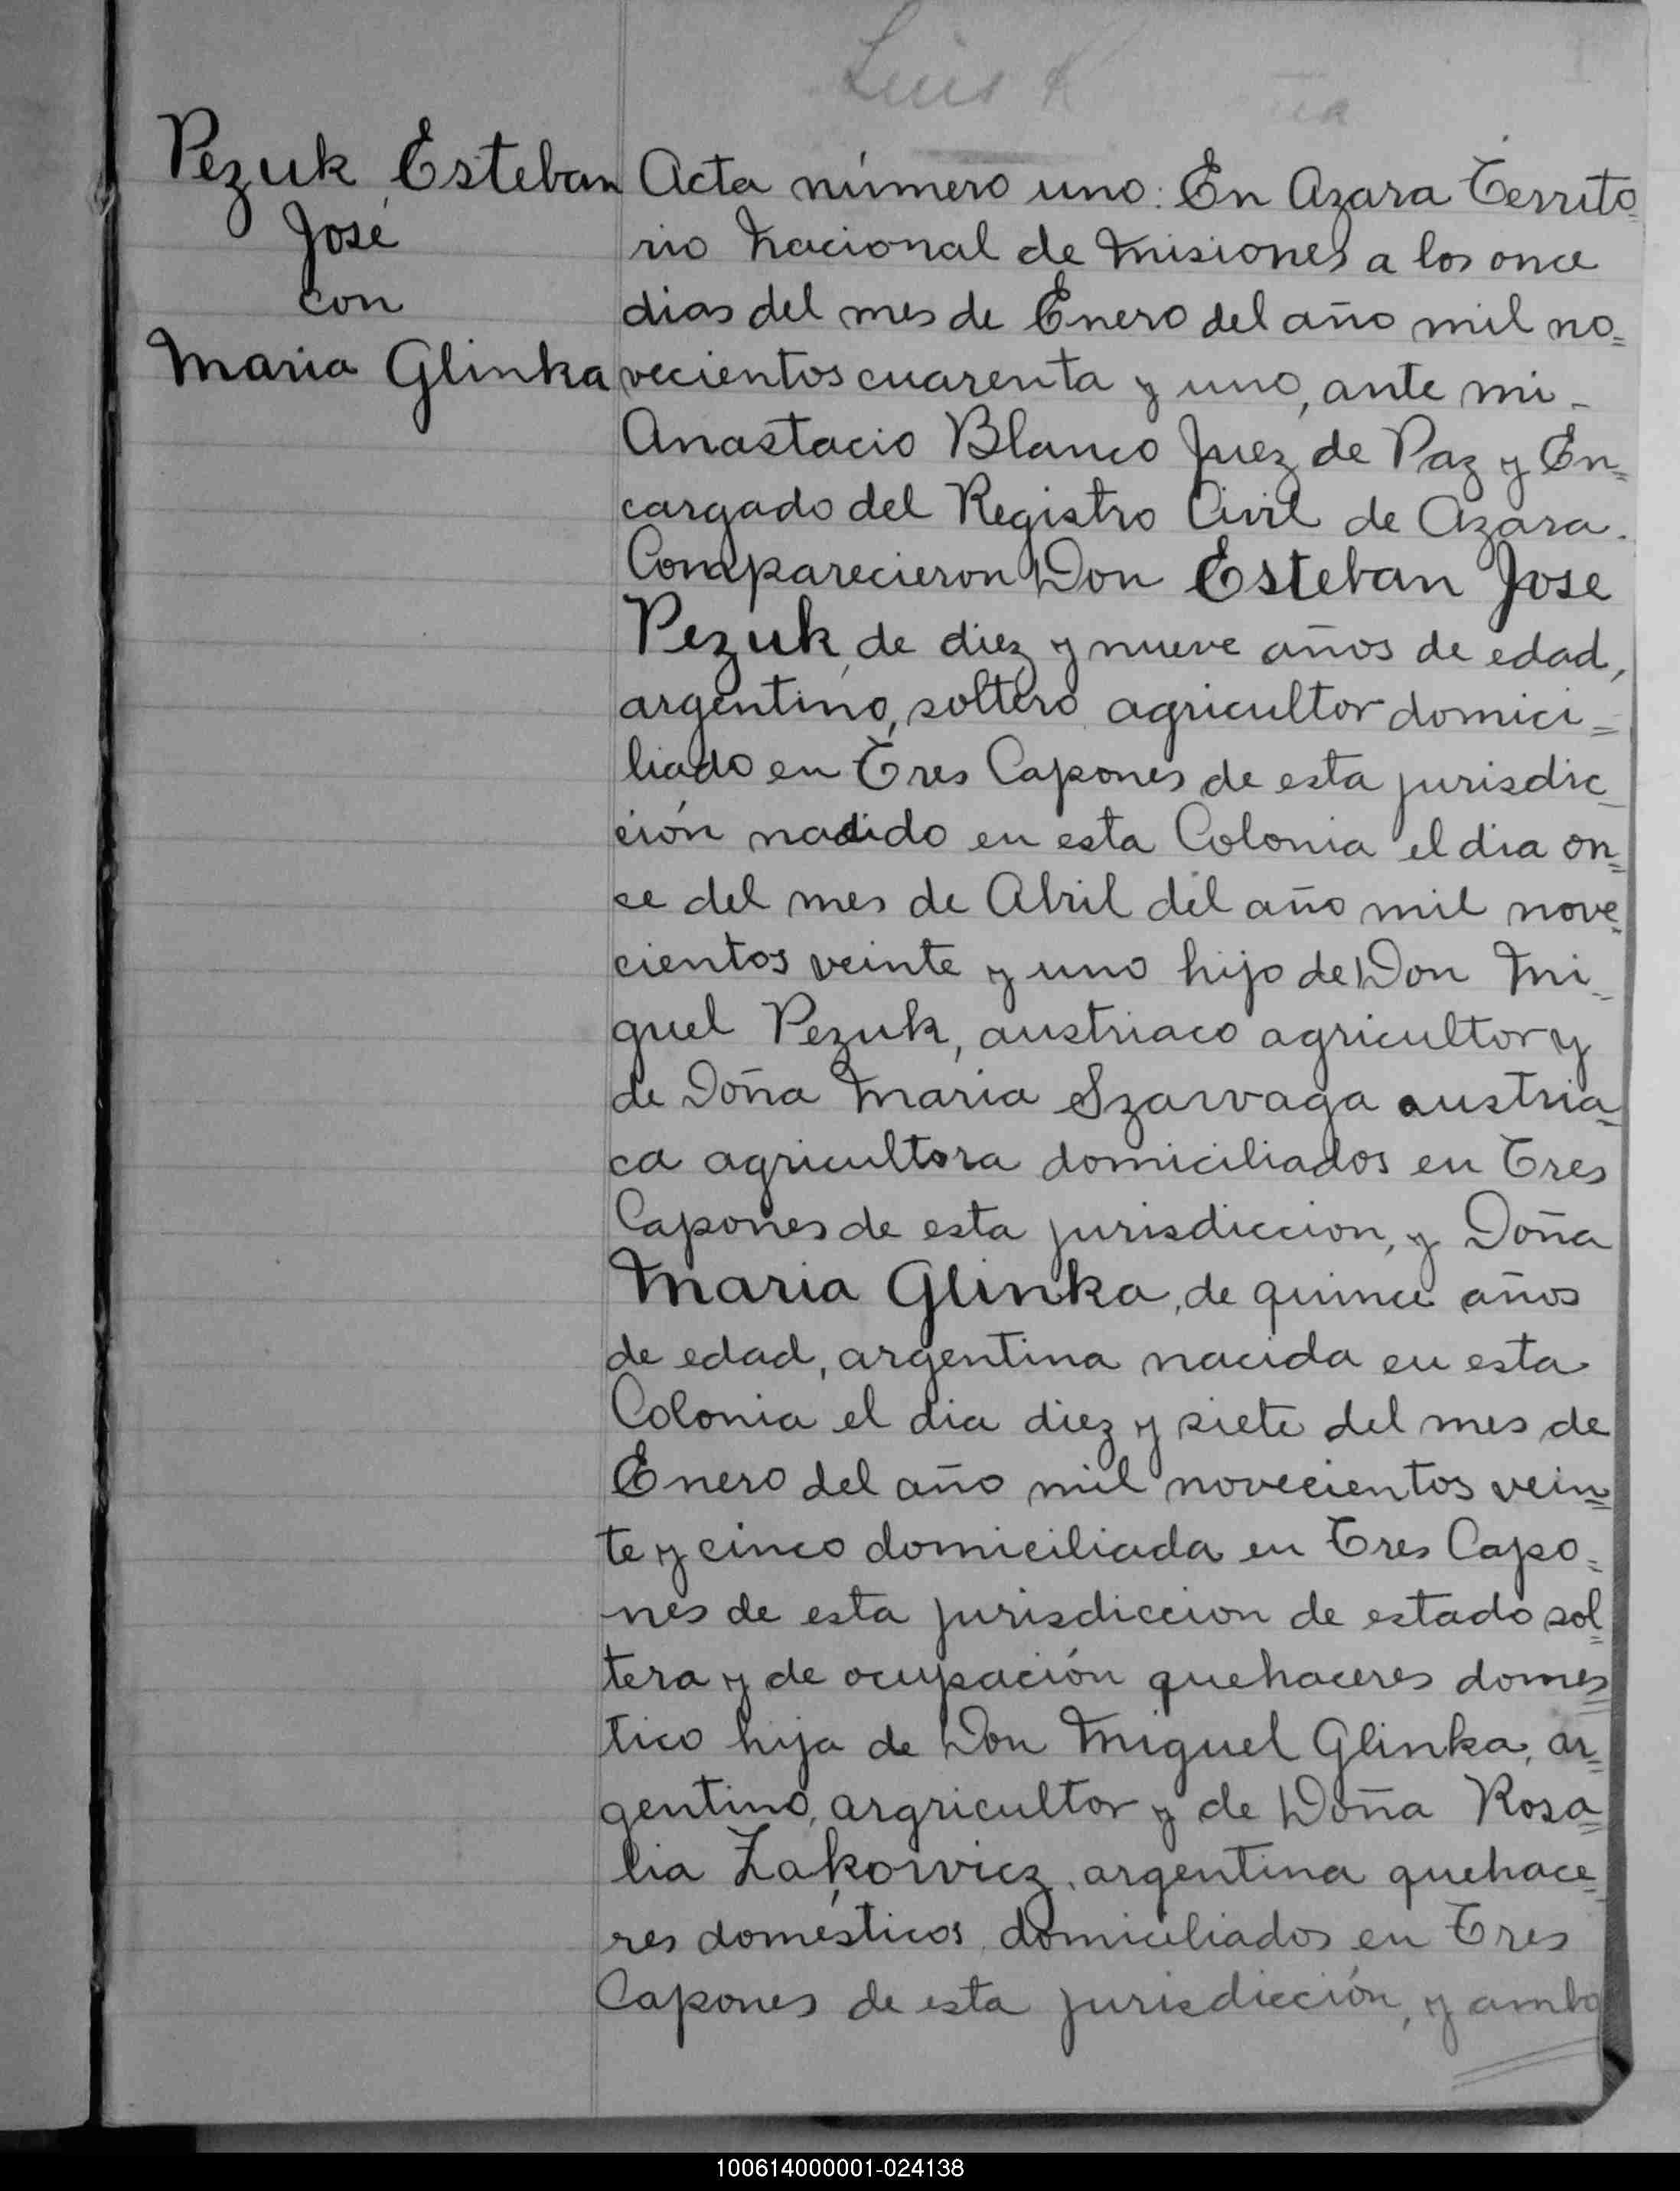 Luis
Pezuk Esteban
José
con
Maria Glinka
Acta número uno: En Azara Territo=
rio Nacional de Misiones a los once
dias del mes de Enero del año mil no=
vecientos cuarenta y uno, ante mi -
Anastacio Blanco Juez de Paz y En=
cargado del Registro Civil de Azara.
Comparecieron Don Esteban Jose
Pezuk, de diez y nueve años de edad,
argentino, soltero agricultor domici=
liado en Tres Capones de esta jurisdic_
ción nacido en esta Colonia el dia on=
ce del mes de Abril del año mil nove=
cientos veinte y uno hijo de Don Mi_
guel Pezuk, austriaco agricultor y
de Doña Maria Szarvaga austria_
ca agricultora domiciliados en Tres
Capones de esta jurisdiccion, y Doña
Maria Glinka, de quince años
de edad, argentina nacida en esta
Colonia el dia diez y siete del mes de
Enero del año mil novecientos vein=
te y cinco domiciliada en Tres Capo=
nes de esta jurisdiccion de estado sol=
tera y de ocupación quehaceres domes=
tico hija de Don Miguel Glinka, ar=
gentino, argricultor y de Doña Rosa=
lia Zakowicz, argentina quehace=
res domésticos, domiciliados en Tres
Capones de esta jurisdicción, y ambo
100614000001-024138